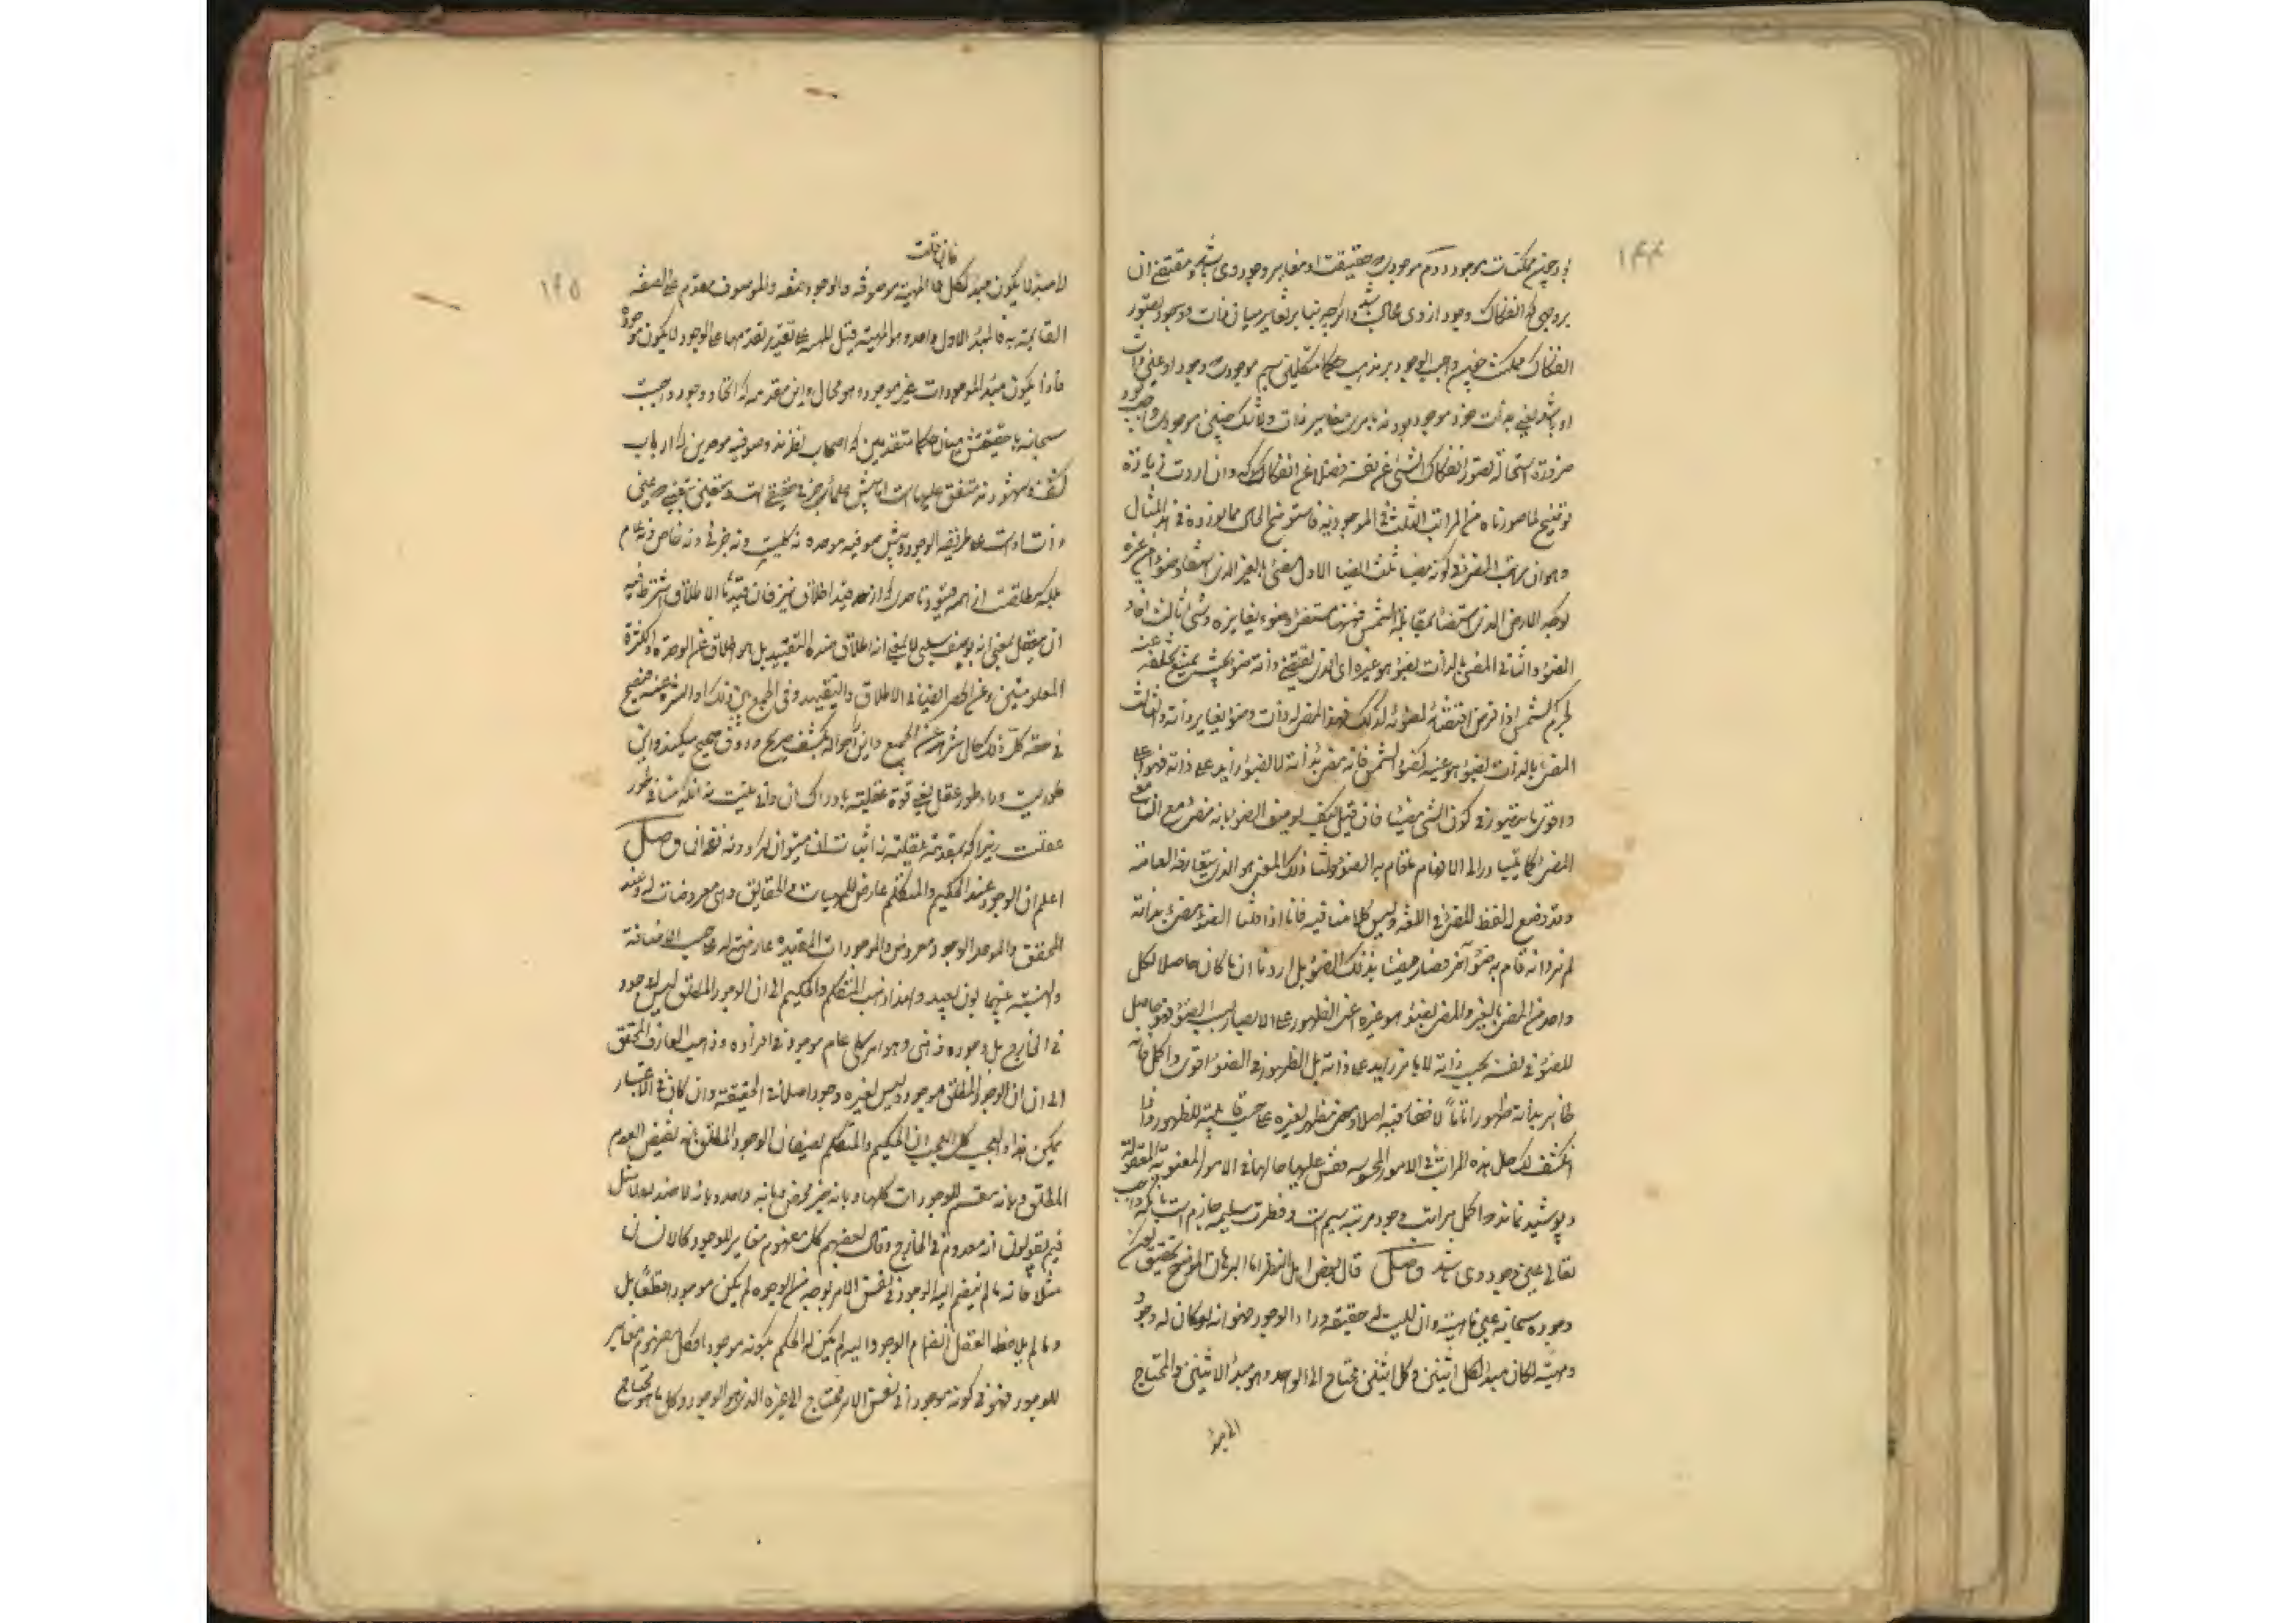 ۱۴۴
بود چنین ممکنات موجوده دوم موجودی که حقیقت او مغایر وجود وی باشد و مقتضی آن
بروجهی که انفکاک وجود از وی محال باشد و اگرچه بنابر تغایر میان ذات و وجود تصور
انفکاک ممکنست چنین واجب الوجود بر مذهب حکما متکلمین سیم موجودی که وجود او عین ذات
او باشد یعنی بذات خود موجود بود نه بامری مغایر ذات ولا شک چنین موجودی واجب بود
ضرورة استحالة تصور انفکاک الشیء عن نفسه فضلا عن انفکاکه وان اردت زیادة
توضیح لما صورناه من المراتب الثلث فی الموجودیة فاستوضح الحال مما نورده فی هذا المثال
وهو ان مراتب المضیء فی کونه مضیئا ثلث ایضا الاول المضیء بالغیر الذی استفاد ضوءه من غیره
کوجه الارض الذی استضاء بمقابلة الشمس فههنا مضیء وضوء یغایره وشیء ثالث افاد
الضوء والثانی المضیء بالذات بضوء هو غیره ای الذی یقتضی ذاته ضوءه بحیث یمتنع تخلفه عنه
کجرم الشمس اذا فرض اقتضائه لضوئه کذلک فهذا المضیء له ذات وضوء یغایر ذاته والثالث
المضیء بالذات بضوء هو عینه کضوء الشمس فانه مضیء بذاته لا بضوء زاید علی ذاته فهو اعلی
واقوی ما یتصور فی کون الشیء مضیئا فان قیل کیف یوصف الضوء بانه مضیء مع ان معنی
المضیء کما یتبادر الی الافهام ما قام به الضوء قلنا ذلک المعنی هو الذی یتعارفه العامة
وقد وضع له لفظ المضیء فی اللغة ولیس کلامنا فیه فانا اذا قلنا الضوء مضیء بذاته
لم نرد انه قام به ضوء آخر فصار مضیئا بذلک الضوء بل اردنا ان ما کان حاصلا لکل
واحد من المضیء بالغیر والمضیء بضوء هو غیره اعنی الظهور علی الابصار بسبب الضوء فهو حاصل
للضوء فی نفسه بحسب ذاته لا بامر زاید علی ذاته بل الظهور فی الضوء اقوی واکمل فانه
ظاهر بذاته ظهورا تاما لا خفاء فیه اصلا ومظهر لغیره علی حسب قابلیته للظهور واذا
انکشف لک حال هذه المراتب فی الامور المحسوسة فقس علیها حالها فی الامور المعنویة المعقولة
وپوشیده نماند که اکمل مراتب وجود مرتبه سیم است وفطرت سلیمه جازم است بآنکه واجب
تعالی عین وجود وی باشد وصل قال بعض اهل النظر اما البرهان الموضح لتحقیق کون
وجوده سبحانه عین ماهیته وان لیست له حقیقة وراء الوجود فهو انه لو کان له وجود
ومهیة لکان مبدأ الکل اثنین وکل اثنین محتاج الی الواحد وهو مبدأ الاثنین والمحتاج
الی مبدأ
۱۴۵
فان قلت
لا مبدأ لا یکون مبدأ لکل المهیة موصوفة والوجود صفة والموصوف مقدم علی الصفة
القائمة به فالمبدأ الاول واحد وهو المهیة قیل المهیة علی تقدیر تقدمها علی الوجود لا یکون موجودة
فاذا یکون مبدأ الموجودات غیر موجود وهو محال واین مقدمه که اتحاد وجود واجبست
سبحانه با حقیقتش میان حکماء متقدمین که اصحاب نظرند وصوفیه موحدین که ارباب
کشف وشهودند متفق علیها است اما پیش حکما جزئی حقیقی است ومتعین بتعینی که عین
ذات اوست علی طریقة الوجود وپیش صوفیه موحده نه کلیست ونه جزئی ونه خاص ونه عام
بلکه مطلقست از همه قیود تا حدی که از قید اطلاق نیز فان قید الاطلاق اشترط فیه
ان یتعقل بمعنی انه وصف سلبی لا بمعنی انه اطلاق ضده التقیید بل هو اطلاق عن الوحدة والکثرة
المعلومتین وعن الحصر ایضا فی الاطلاق والتقیید وفی الجمع بین ذلک او التنزه عنه فیصح
فی حقه کل ذلک حال تنزهه عن الجمع واین را حواله بکشف صریح وذوق صحیح میکنند واین
طوریست وراء طور عقل یعنی قوة عقلیه بادراک آن وافی نیست نه آنکه منافی طور
عقلست زیرا که بمقدمه عقلیه نه اثبات آن میتوان کرد ونه نفی آن وصل
اعلم ان الوجود عند الحکیم والمتکلم عارض للمهیات والحقایق وهی معروضات له وعند
المحقق والموحد الوجود معروض والموجودات المقیدة عارضة له علی حسب الاضافة
والنسبة وبینهما بون بعید ولهذا ذهب المتکلم والحکیم الی ان الوجود المطلق لیس له وجود
فی الخارج بل وجوده ذهنی وهو امر کلی عام موجود فی افراده وذهب العارف المحقق
الی ان الوجود المطلق موجود ولیس لغیره وجود اصلا فی الحقیقة وان کان فی الاعتبار
ممکن هذا والعجب کل العجب ان الحکیم والمتکلم یصفان الوجود المطلق بانه نقیض العدم
المطلق وبانه مقسم للموجودات کلها وبانه خیر محض وبانه واحد وبانه لا ضد له ولا مثل
فیم یقولون انه معدوم فی الخارج وقال بعضهم کل مفهوم مغایر للوجود کالانسان
مثلا فانه ما لم ینضم الیه الوجود فی نفس الامر بوجه من الوجوه لم یکن موجودا قطعا بل
وما لم یلاحظ العقل انضمام الوجود الیه لم یمکن له الحکم بکونه موجودا فکل مفهوم مغایر
للوجود فهو فی کونه موجودا فی نفس الامر محتاج الی غیره الذی هو الوجود وکل ما هو محتاج